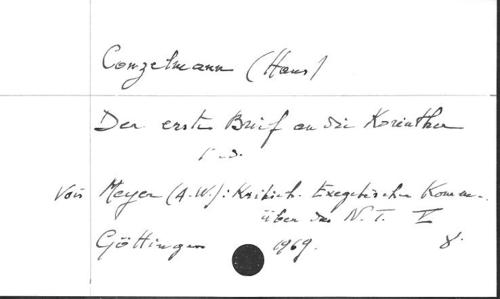 Conzelmann (Hans)
Der erste Brief an die Korinther
Voir Meyer (A.W.): Kritisch. Exegetischer Komm.
über das N.T. V
Göttingen 1969. 8.